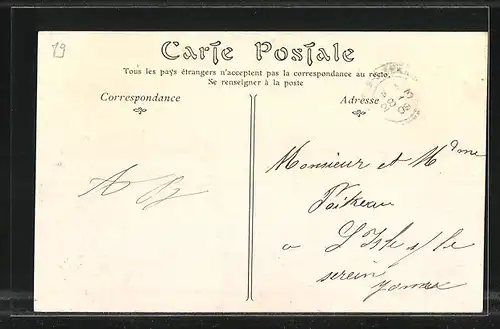 19
Carte Postale
Tous les pays étrangers n'acceptent pas la correspondance au recto.
Se renseigner à la poste
Correspondance
Adresse
Monsieur et Mdme
à L'Isle s/ le
serein
Yonne